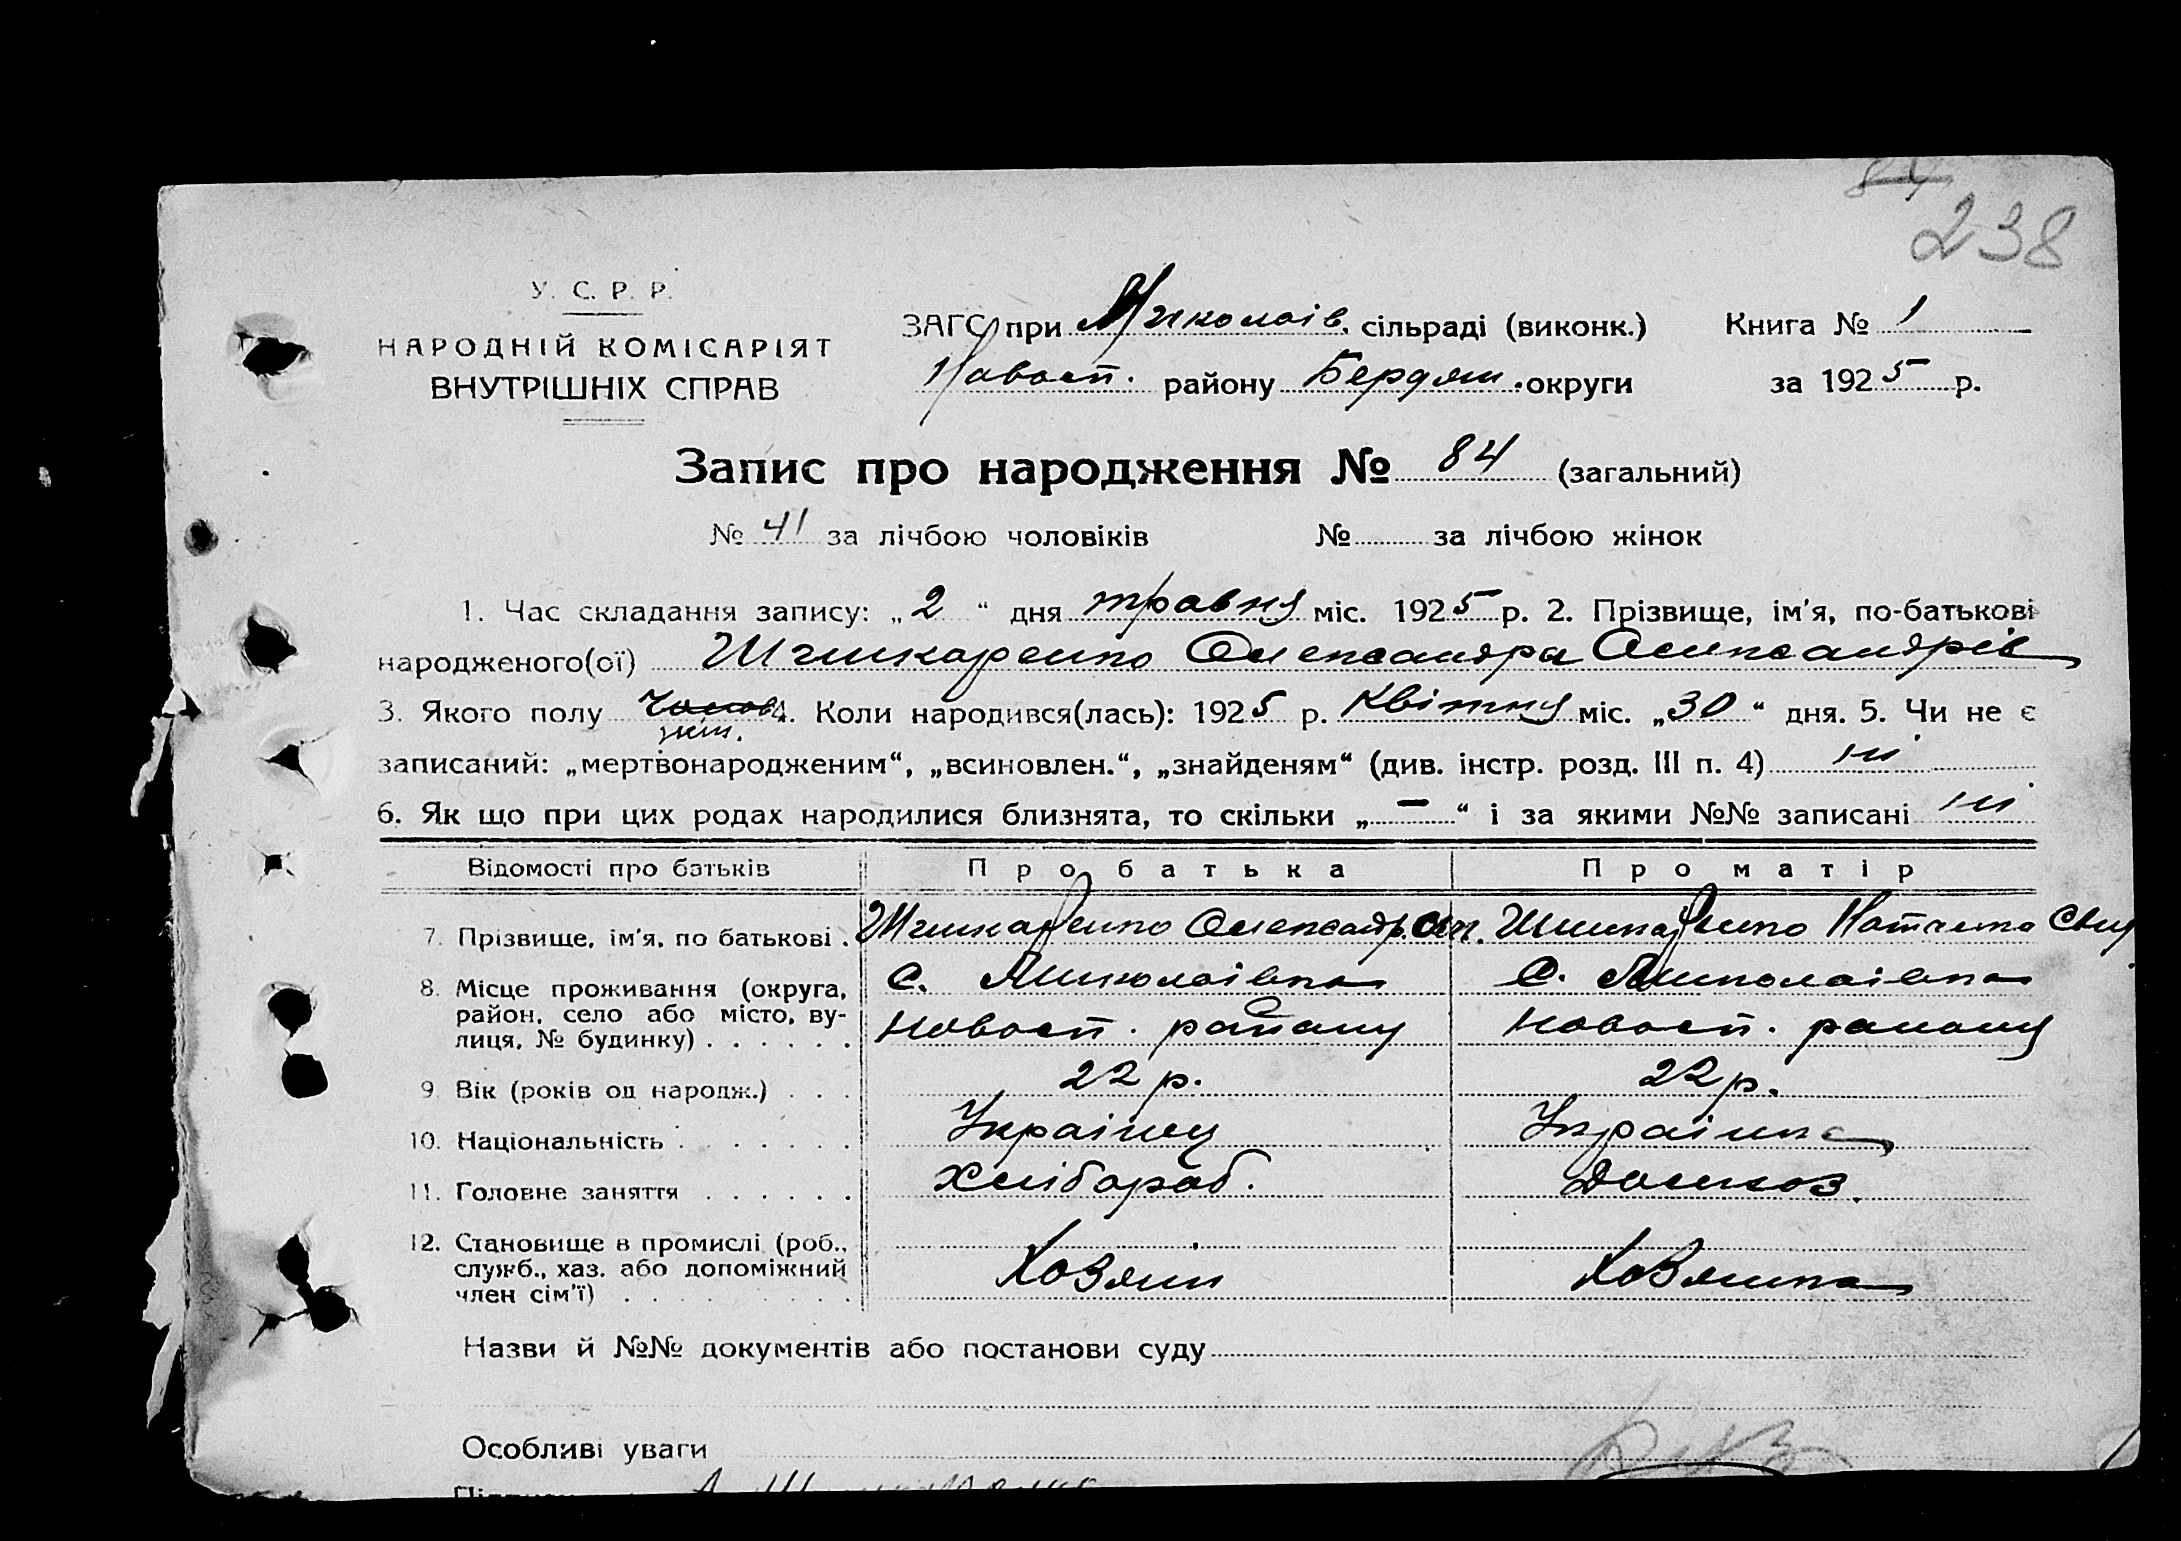 84
238
У. С. Р. Р.
НАРОДНІЙ КОМІСАРІЯТ
ВНУТРІШНІХ СПРАВ
ЗАГС при Миколаів. сільраді (виконк.) Книга № 1
Новосп. району Бердян. округи за 1925 р.
Запис про народження № 84 (загальний)
№ 41 за лічбою чоловіків № за лічбою жінок
1. Час складання запису: „2“ дня травня міс. 1925 р. 2. Прізвище, ім'я, по-батькові
народженого(ої) Шишкаренко Олександра Олександрів
3. Якого полу Чолов 4. Коли народився(лась): 1925 р. Квітня міс. „30“ дня. 5. Чи не є
жін.
записаний: „мертвонародженим“, „всиновлен.“, „знайденям“ (див. інстр. розд. III п. 4) ні
6. Як що при цих родах народилися близнята, то скільки „—“ і за якими №№ записані ні
Відомості про батьків Про батька Про матір
7. Прізвище, ім'я, по батькові . Шишкаренко Олександр. Шишкаренко Наталка
8. Місце проживання (округа, район, село або місто, вулиця, № будинку) . . . . . . с. Миколаівка с. Миколаівка
Новосп. району Новосп. району
9. Вік (років од народж.) . . . 22 р. 22 р.
10. Національність . . . . . . . Украінец Украінка
11. Головне заняття . . . . . . Хлібороб. Домхоз.
12. Становище в промислі (роб., служб., хаз. або допоміжний член сім'ї) . . . . . . . . . Хозяин Хозяйка
Назви й №№ документів або постанови суду
Особливі уваги